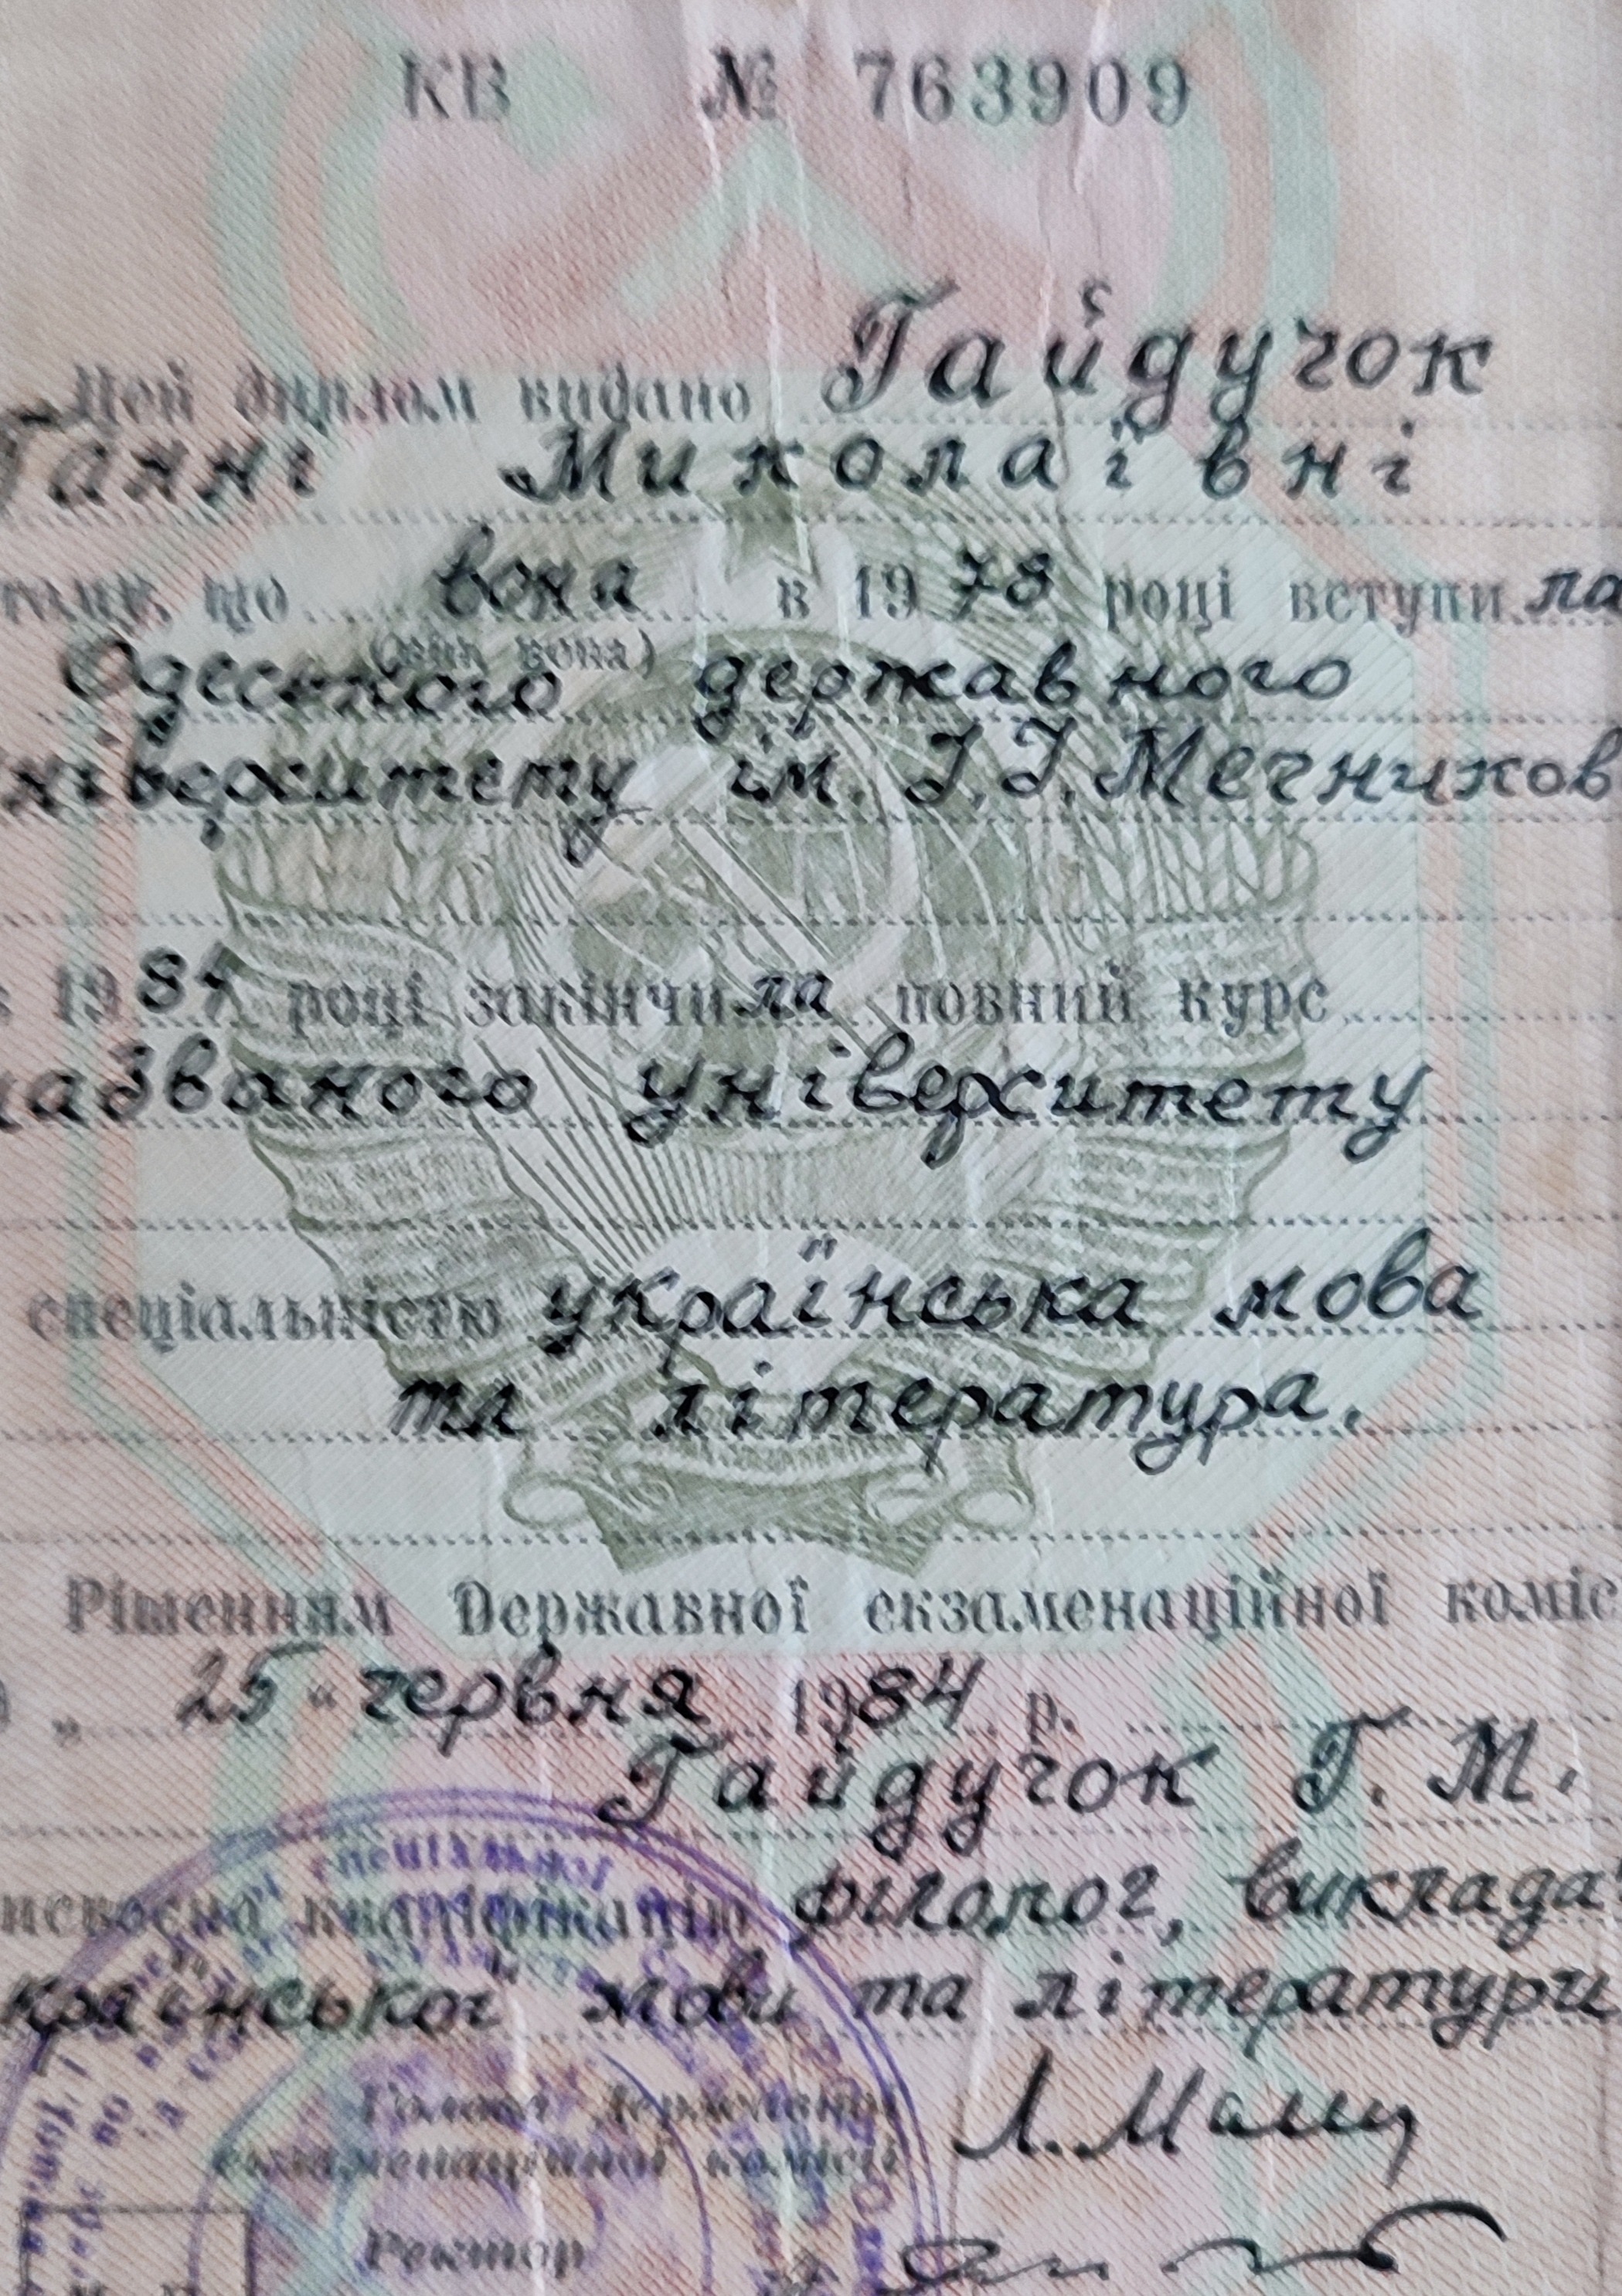 КВ № 763909
Цей диплом видано Гайдучок
Ганні Миколаївні
тому, що вона в 1978 році вступила
(він, вона)
Одеського державного
ніверситету ім. І.І. Мечников
19 84 році закінчила повний курс
названого університету
спеціальністю українська мова
та література.
Рішенням Державної екзаменаційної коміс
„ 25 " червня 1984 р.
Гайдучок Г. М.
присвоєна кваліфікацію філолог, виклада
країнської мови та літератури
Голова Державної
екзаменаційної комісії
Ректор